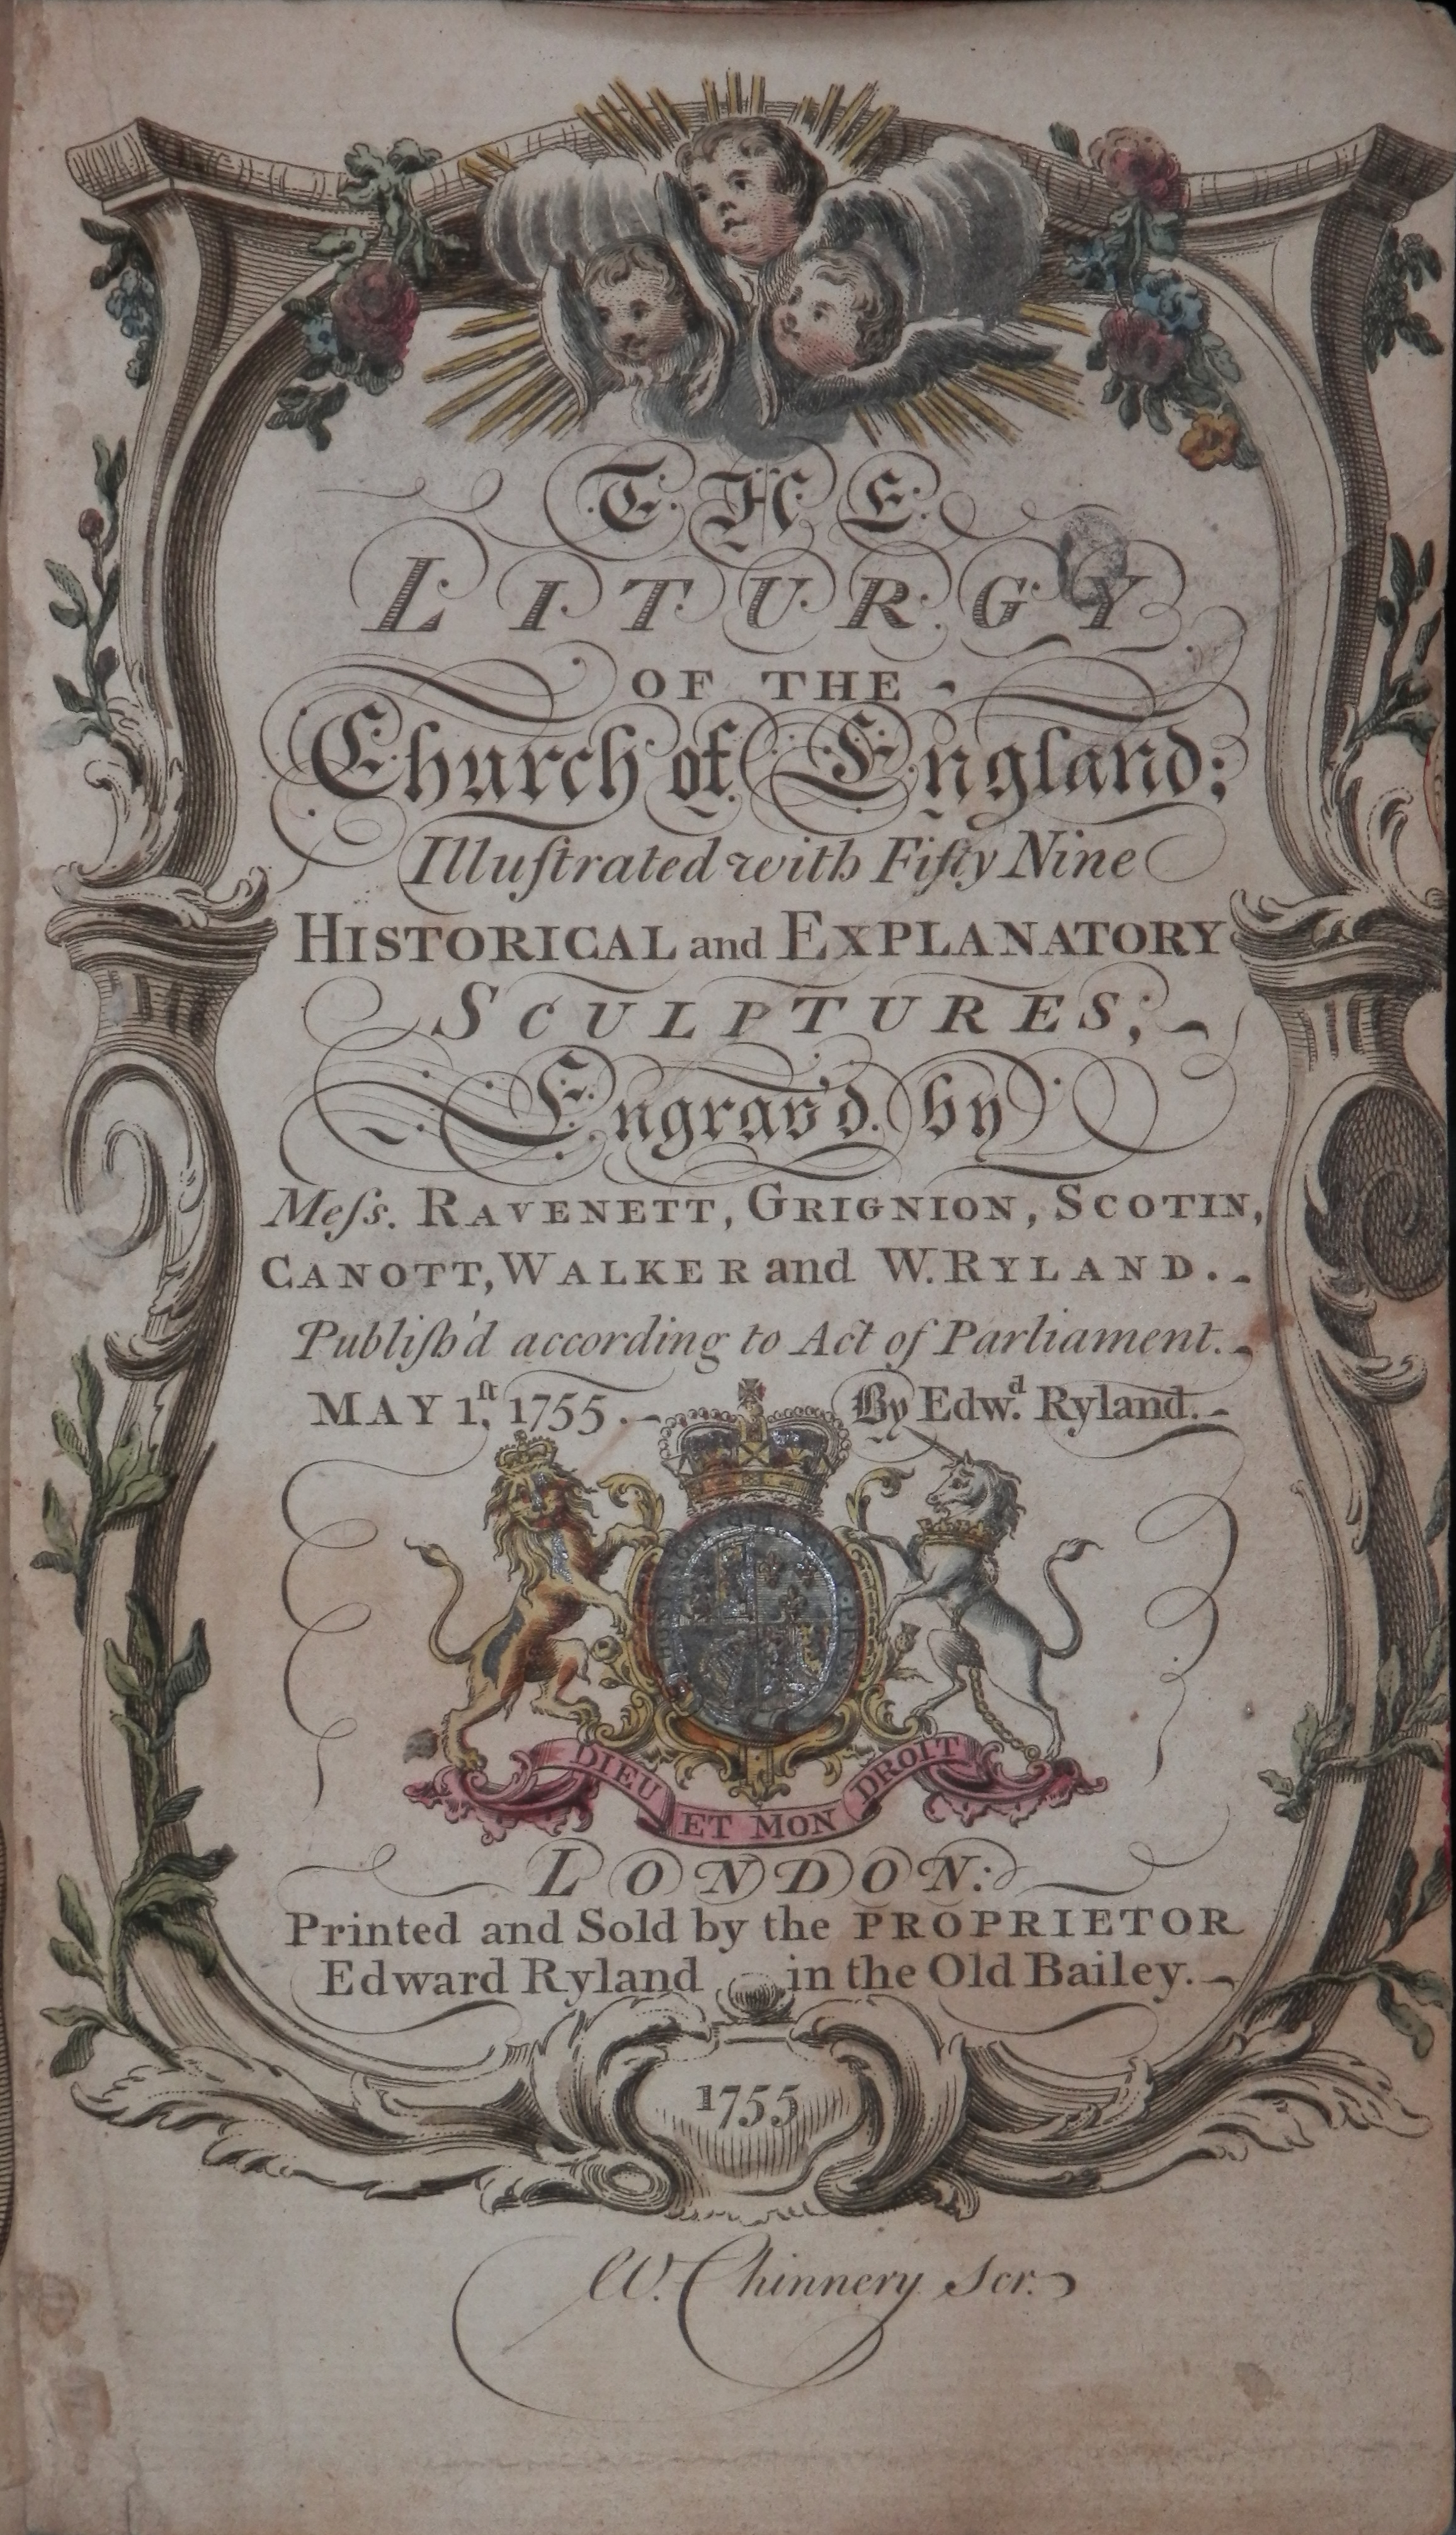 THE
LITURGY
OF THE
Church of England;
Illuſtrated with Fifty Nine
HISTORICAL and EXPLANATORY
SCULPTURES;
Engrav'd by
Meſs. RAVENETT, GRIGNION, SCOTIN,
CANOTT, WALKER and W. RYLAND.
Publiſh'd according to Act of Parliament.
MAY 1ſt, 1755. By Edwd. Ryland.
DIEU ET MON DROIT
LONDON:
Printed and Sold by the PROPRIETOR
Edward Ryland in the Old Bailey.
1755
W. Chinnery Scr.